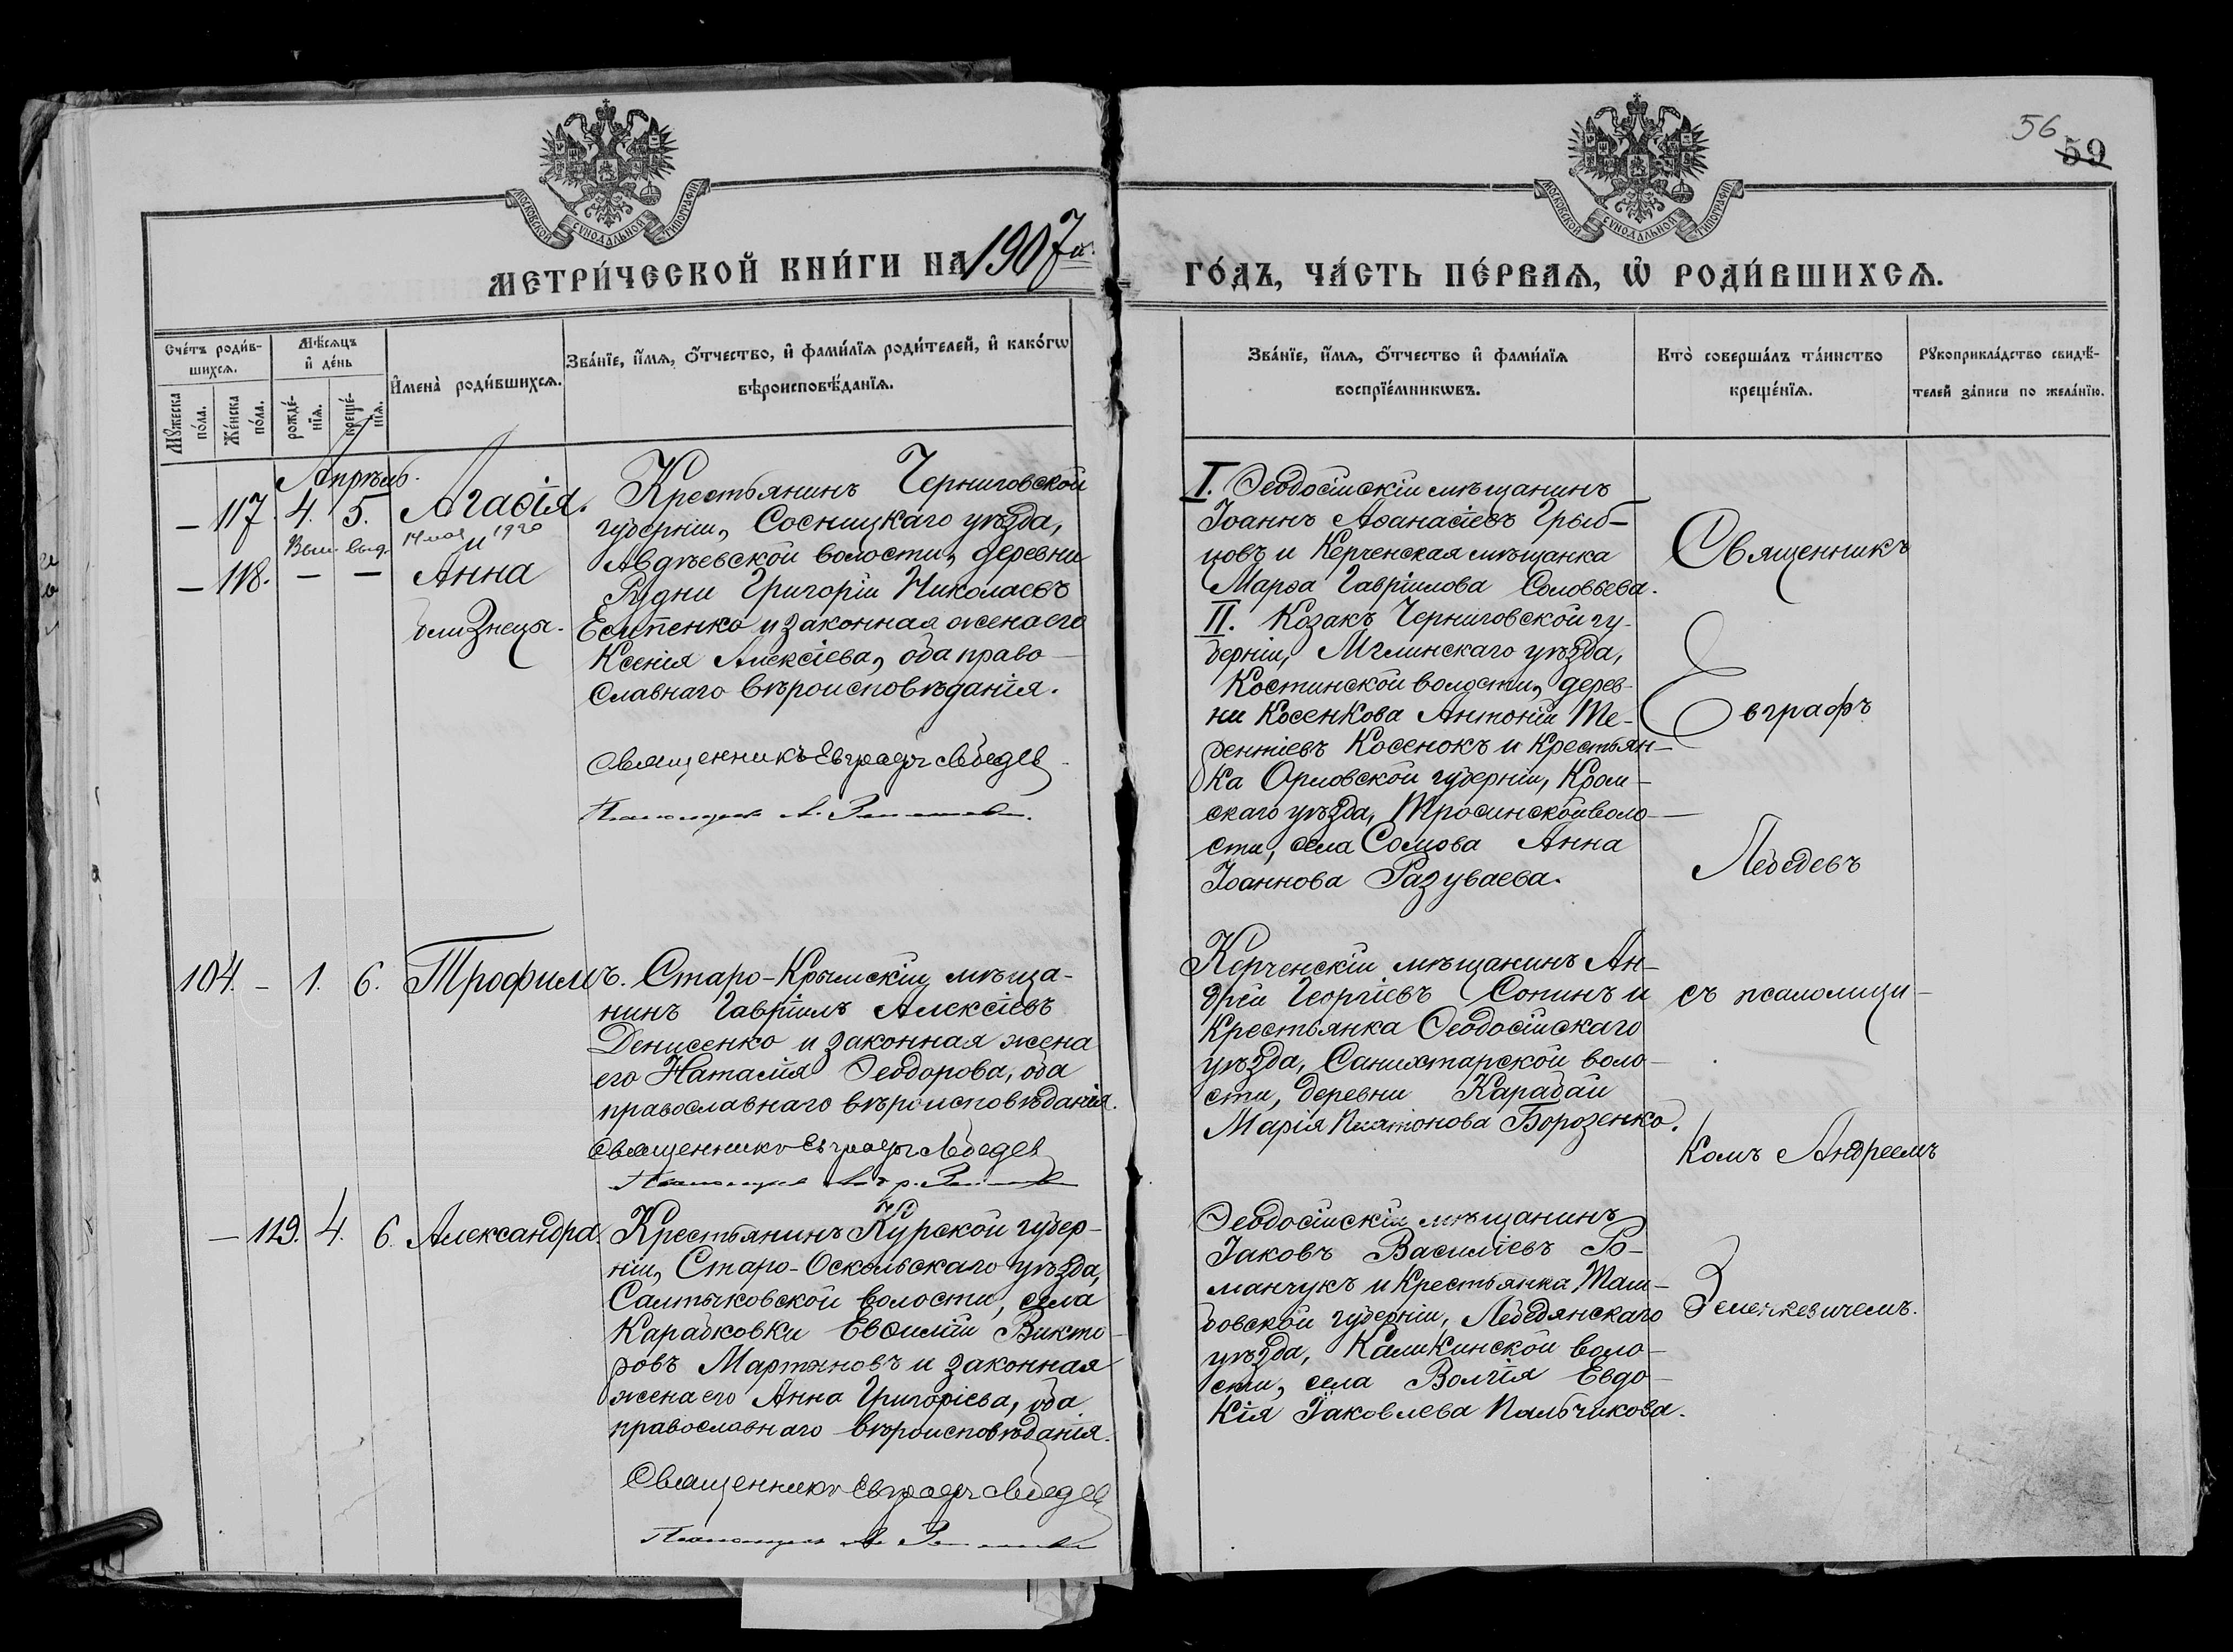 56
59
МОСКОВСКОЙ СУНОДАЛЬНОЙ ТИПОГРАФІИ
МОСКОВСКОЙ СУНОДАЛЬНОЙ ТИПОГРАФІИ
МЕТРИ́ЧЕСКОЙ КНИ́ГИ НА 1907 й
ГО́ДЪ, ЧА́СТЬ ПЕ́РВАѦ, Ѽ РОДИ́ВШИХСѦ.
Сче́тъ роди́в-
шихсѧ.
Мꙋ́жеска по́ла.
Же́нска по́ла.
Мѣ́сѧцъ
и҆ де́нь
рожде́-
нїѧ.
креще́-
нїѧ.
И҆мена̀ роди́вшихсѧ.
Зва́нїе, и҆́мѧ, ѻ҆́тчество, и҆ фами́лїѧ роди́телей, и҆ како́гѡ
вѣроисповѣ́данїѧ.
Зва́нїе, и҆́мѧ, ѻ҆́тчество и҆ фами́лїѧ
воспрїе́мникѡвъ.
Кто̀ соверша́лъ та́инство
креще́нїѧ.
Рꙋкоприкла́дство свидѣ́-
телей за́писи по жела́нїю.
Апрѣль.
— 117. 4. 5. Агаѳія.
Вып. выд. 14 мая 1920
и
— 118. — — Анна
близнецы.
Крестьянинъ Черниговской
губерніи, Сосницкаго уѣзда,
Авдѣевской волости, деревни
Рудни Григорій Николаевъ
Есипенко и законная жена его
Ксенія Алексіева, оба право-
славнаго вѣроисповѣданія.
Священникъ Евграфъ Лебедев
Псаломщик А.
I. Ѳеодосійскій мѣщанинъ
Іоаннъ Аѳанасіевъ Грыб-
цовъ и Керченская мѣщанка
Марѳа Гавріилова Соловьева.
II. Козакъ Черниговской гу-
берніи, Мглинскаго уѣзда,
Костинской волости, дерев-
ни Косенкова Антоній Те-
рентіевъ Косенокъ и крестьян-
ка Орловской губерніи, Кром-
скаго уѣзда, Тросинской воло-
сти, села Сомова Анна
Іоаннова Разуваева.
Священникъ
Евграфъ
Лебедевъ
104. — 1. 6. Трофимъ.
Старо-Крымскій мѣща-
нинъ Гавріилъ Алексіевъ
Денисенко и законная жена
его Наталія Ѳеодорова, оба
православнаго вѣроисповѣданія.
Священникъ Евграфъ Лебедев
Псаломщик
Керченскій мѣщанинъ Ан-
дрей Георгіевъ Сопинъ и
крестьянка Ѳеодосійскаго
уѣзда, Салыхтарской воло-
сти, деревни Карабай
Марія Платонова Борозенко.
съ псаломщи-
комъ Андреемъ
Зеленкевичемъ.
— 119. 4. 6. Александра.
Крестьянинъ Курской губер-
ніи, Старо-Оскольскаго уѣзда,
Салтыковской волости, села
Карабковки Евѳимій Викто-
ровъ Мартыновъ и законная
жена его Анна Григоріева, оба
православнаго вѣроисповѣданія.
Священникъ Евграфъ Лебедев
Псаломщик А.
Ѳеодосійскій мѣщанинъ
Іаковъ Василіевъ Ро-
манчукъ и крестьянка Там-
бовской губерніи, Лебедянскаго
уѣзда, Каликинской воло-
сти, села Волчія Евдо-
кія Іаковлева Пальчикова.